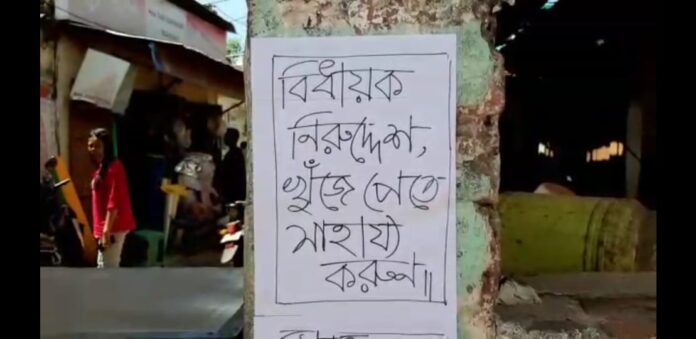 বিধায়ক
নিরুদ্দেশ,
খুঁজে পেতে
সাহায্য
করুন॥